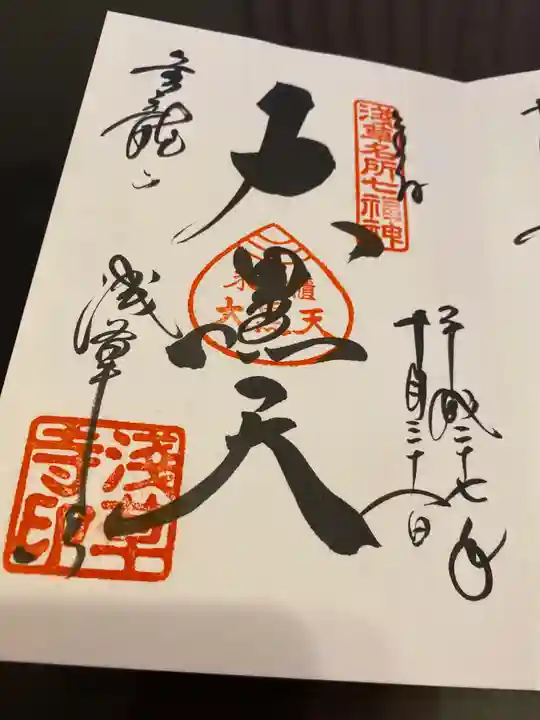 奉拝
淺草名所七福神
平成二十七年
十月三十一日
大黒天
金龍山
浅草寺
淺草寺印